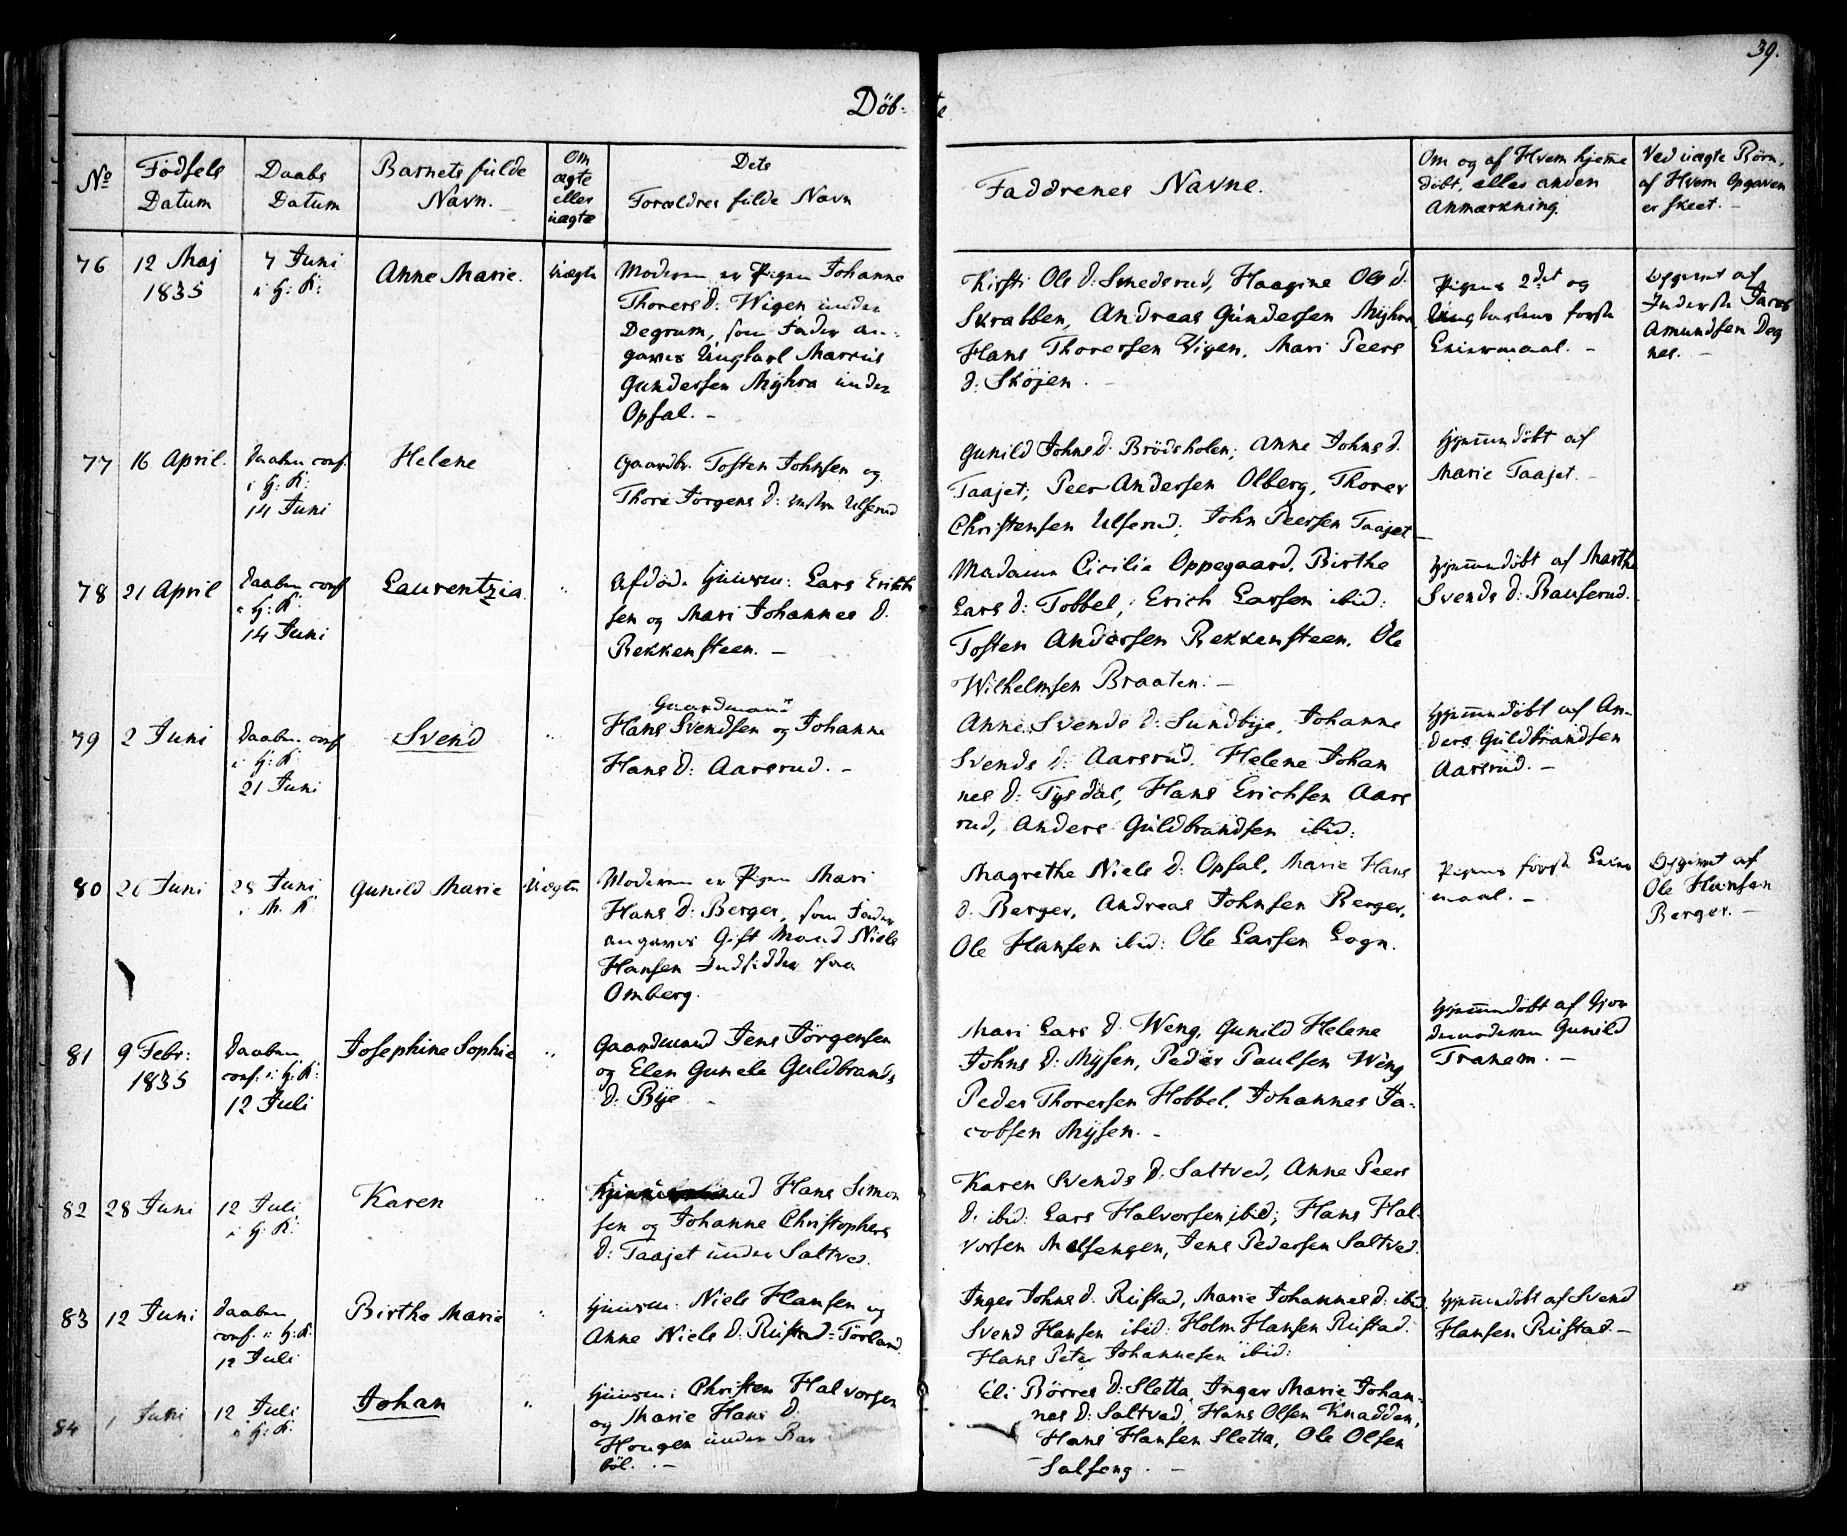 39.
Döb- te
No
Födsels
Datum
Daabs
Datum
Barnets fulde
Navn.
Om
ægte
eller
uægte
Dets
Forældres fulde Navn
Faddrenes Navne.
Om og af Hvem hjemme
döbt, eller anden
Anmærkning.
Ved uægte Börn,
af Hvem Opgaven
er skeet. -
76
12 Maj
1835
7 Juni
i H: K:
Anne Marie.
Uægte
Moderen er Pigen Johanne
Thorers D: Wigen under
Degrum, som Fader an-
gaves Ungkarl Marcus
Gundersen Myhra under
Opsal. -
Kirsti Ols d: Smedsrud, Haagine Ols d:
Skrabben, Andreas Gundersen Myhra
Hans Thoresen Vigen, Mari Peers
d: Sköjen. -
Pigens 2det og
Ungkarlens förste
Leiermaal. -
Opgivet af
Inderste
Amundsen Deg
nes. -
77
16 April.
Daaben conf.
i H: K:
14 Juni
Helene
Gaardbr. Tosten Johnsen og
Thore Jörgens D: Ulserud
Gunild Johns d. Brödsholen; Anne Johns d.
Taajet; Peer Andersen Olberg, Thorer
Christensen Ulserud; John Peersen Taajet
Hjemmedöbt af
Marie Taajet. -
78
21 April
Daaben conf.
i H: K:
14 Juni
Laurentzia.
Afdöd. Huusm: Lars Erich
sen og Mari Johannes D.
Rekkensteen. -
Madame Cicilie Oppegaard, Birthe
Lars D: Tobbel, Erich Larsen ibid:
Tosten Andersen Rekkensteen, Ole
Wilhelmsen Braaten: -
Hjemmedöbt af Marthe
Svends D: Rauserud.
79
2 Juni
Daaben conf
i H: K:
21 Juni
Svend
Gaardmand
Hans Svendsen og Johanne
Hans D: Aarsrud. -
Anne Svends D: Sundbye, Johanne
Svends D: Aarsrud. Helene Johan
nes D: Tysdal, Hans Erichsen Aars
rud, Anders Guldbrandsen ibid:
Hjemmedöbt af An-
ders Guldbrandsen
Aarsrud. -
80
26 Juni
28 Juni
i M. K
Gunild Marie
Uægte
Moderen er Pigen Mari
Hans D: Berger, som Fader
angaves Gift Mand Niels
Hansen Indsidder paa
Omberg.
Magrethe Niels D: Opsal, Marie Hans
D. Berger, Andreas Johnsen Berger,
Ole Hansen ibid: Ole Larsen Logn.
Pigens förste Leier
maal. -
Opgivet af
Ole Hansen
Berger. -
81
9 Febr:
1835
Daaben
conf. i H: K:
12 Juli
Josephine Sophie
Gaardmand Jens Jörgensen
og Elen Gunele Guldbrands
D: Bye. -
Mari Lars D. Weng, Gunild Helene
Johns D: Mysen, Peder Paulsen Weng
Peder Thoresen Hobbel, Johannes Ja-
cobsen Mysen. -
Hjemmedöbt af Gjor
demoderen Gunild
Tranem. -
82
28 Juni
12 Juli
i H: K:
Karen
Hans Simon
sen og Johanne Christophers
D: Taajet under Saltved.
Karen Svends D. Saltved, Anne Peers
D. ibid: Lars Halvorsen ibid; Hans Hal-
vorsen Melsengen, Jens Pedersen Saltved.
83
12 Juni
Daaben
conf. i H: K:
12 Juli
Birthe Marie
Huusm: Niels Hansen og
Anne Niels D: Rustad-Torland.
Inger Johns d: Rustad, Marie Johannes d: ibid.
Svend Hansen ibid: Holm Hansen Rustad.
Hans Peter Johannesen ibid:
Hjemmedöbt af Svend
Hansen Rustad. -
84
1 Juni
12 Juli
i H: K:
Johan
Huusm: Christen Halvorsen
og Marie Hans D.
Hougen under Ra
böl. -
Eli Börres D: Sletta, Inger Marie Johan-
nes D: Saltved, Hans Olsen Knadden,
Hans Hansen Sletta, Ole Olsen
Salseng. -